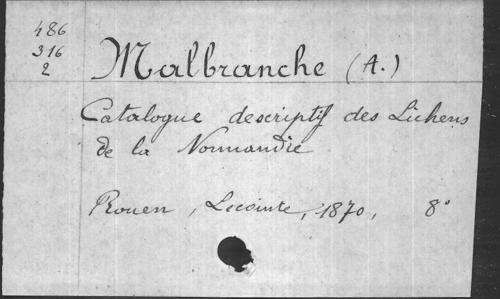 486
316
2
Malbranche (A.)
Catalogue descriptif des Lichens
de la Normandie
Rouen, Lecointe, 1870, 8°